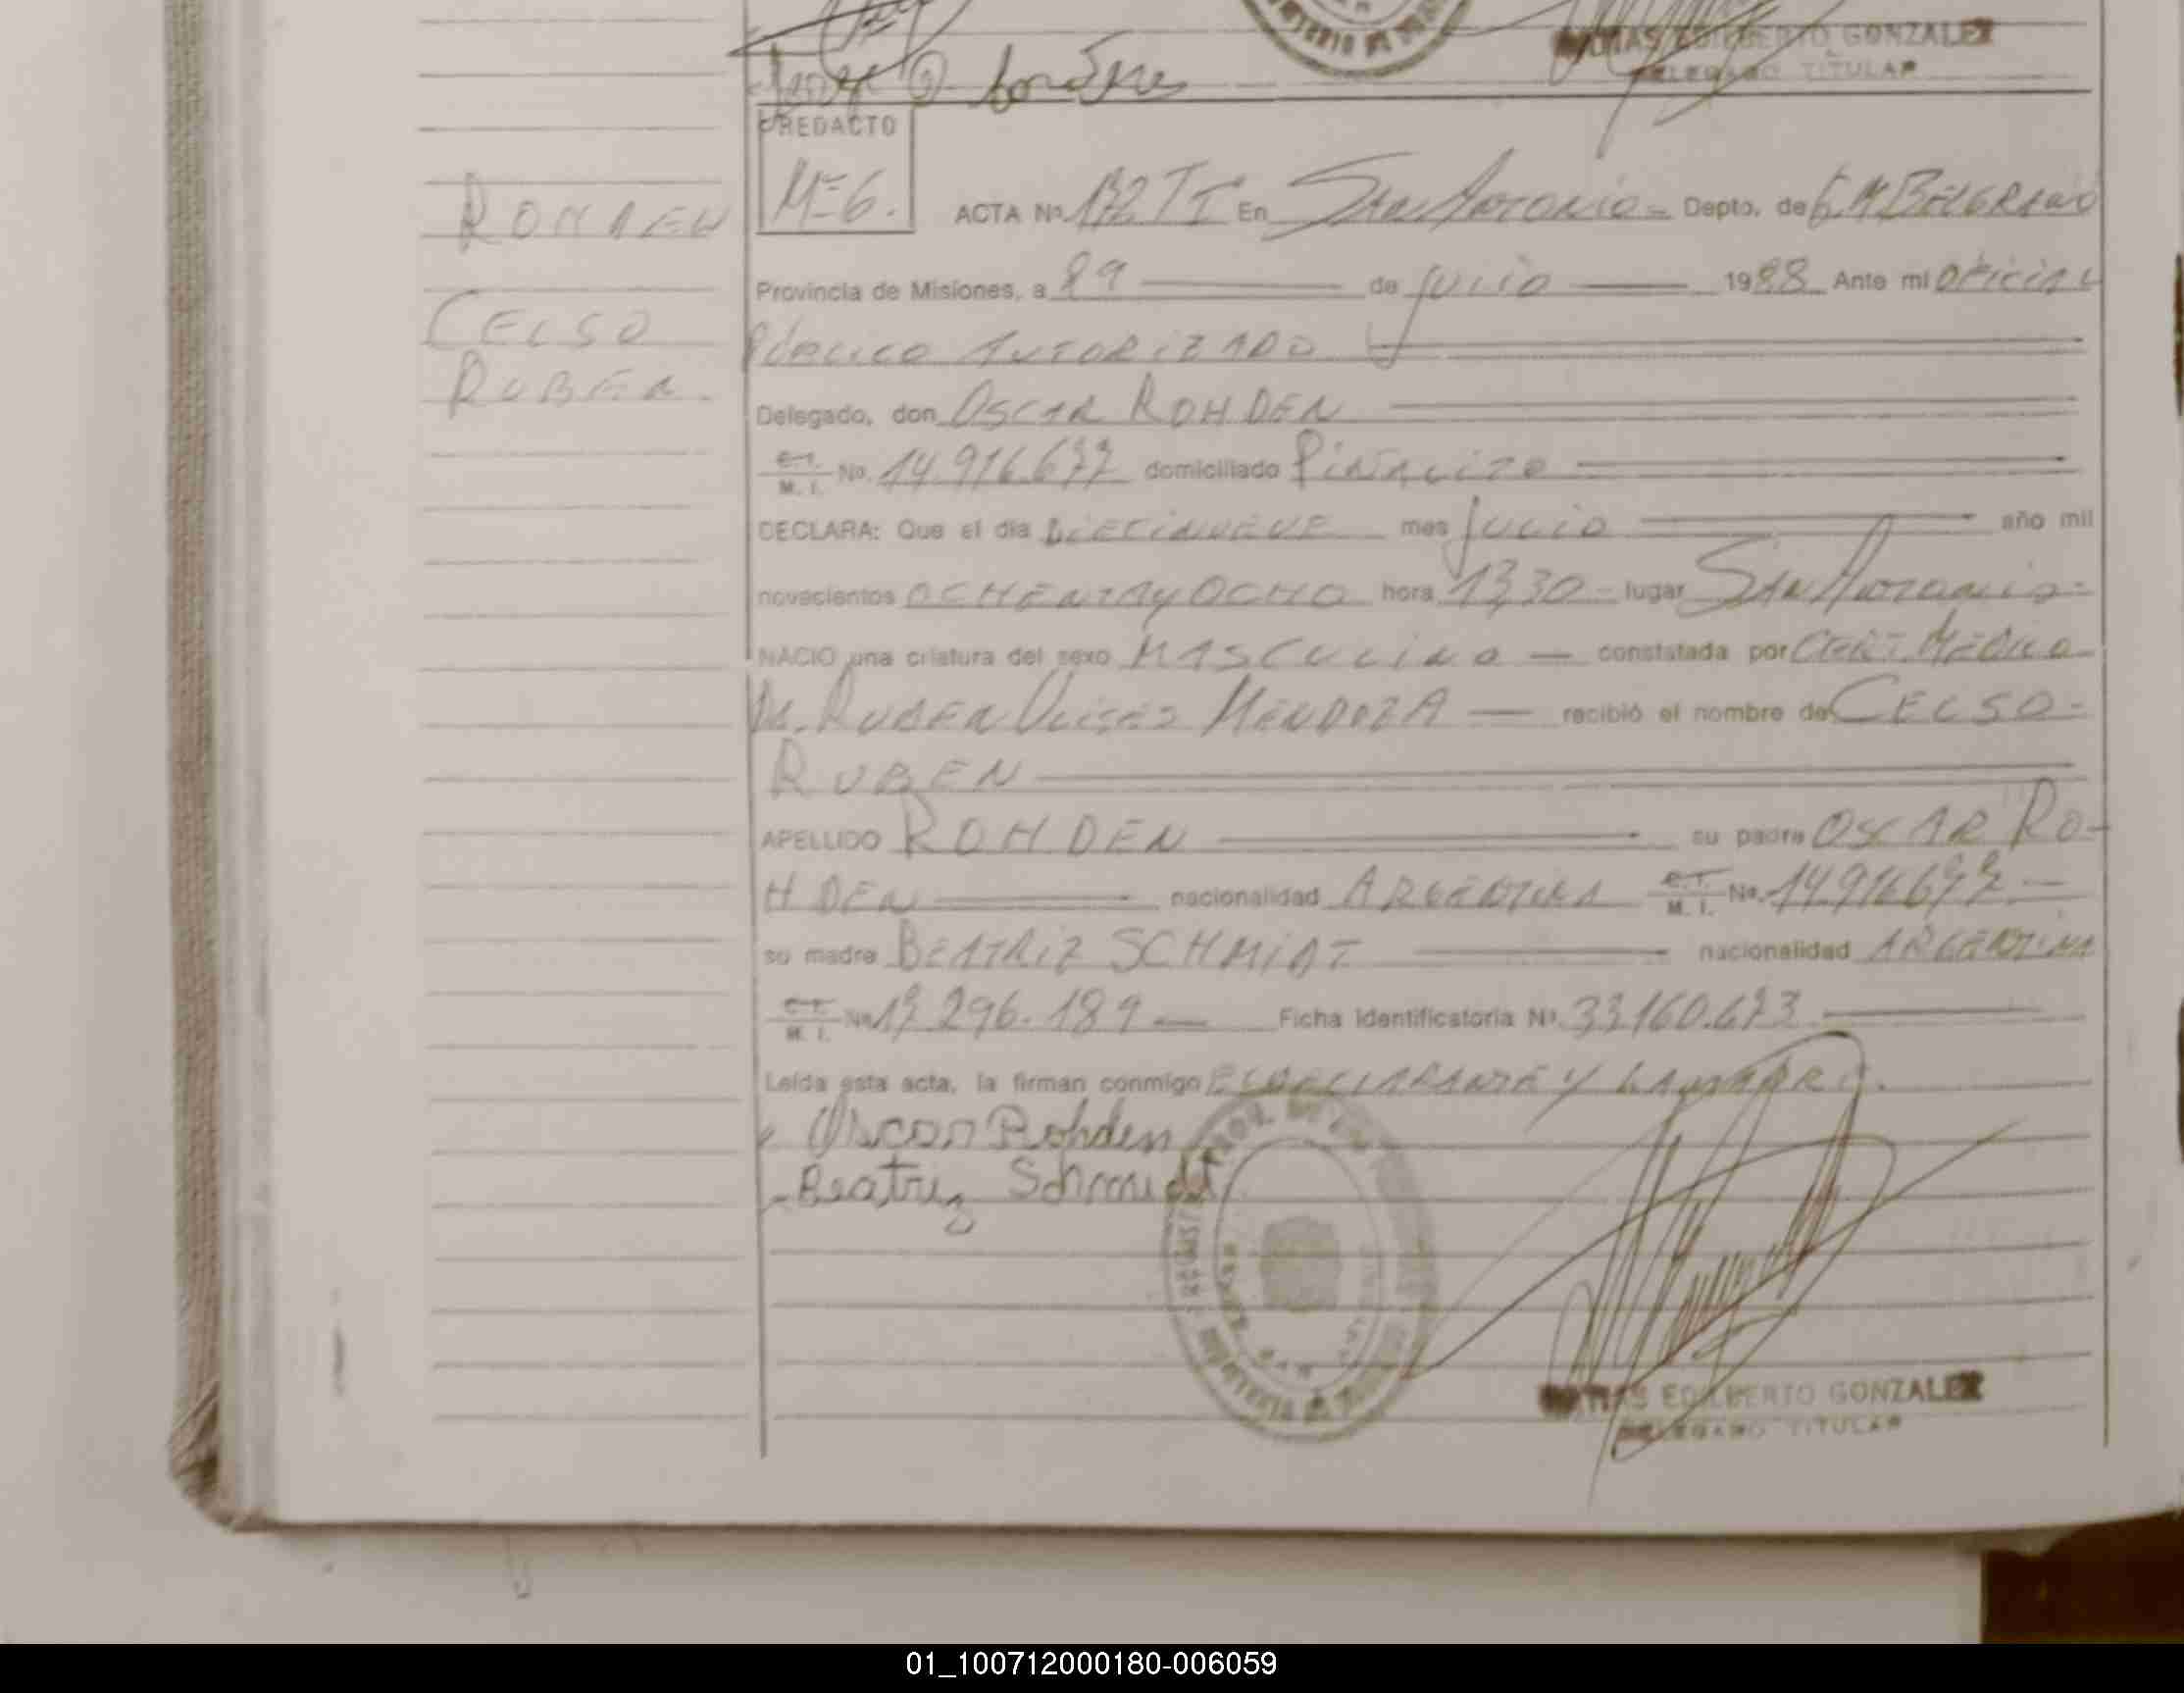 Jorge
MATIAS EDILBERTO GONZALEZ
DELEGADO TITULAR
REDACTO
Mº 6.
ROHDEN
CELSO
RUBEN.
ACTA Nº 172 TI En San Antonio - Depto. de G M BELGRANO
Provincia de Misiones, a 29 de JULIO 1988 Ante mi OFICIAL
PUBLICO AUTORIZADO
Delegado, don OSCAR ROHDEN
C.I. M. I. No. 14.916.677 domiciliado PIÑALITO
DECLARA: Que el día DIECINUEVE mes JULIO año mil
novecientos OCHENTA y OCHO hora 13,30 - lugar San Antonio -
NACIO una criatura del sexo MASCULINO — constatada por CERT. MEDICO
DR. RUBEN ULISES MENDOZA — recibió el nombre de CELSO -
RUBEN
APELLIDO ROHDEN su padre OSCAR RO-
HDEN nacionalidad ARGENTINA C.I. M. I. No. 14.916.677 —
su madre BEATRIZ SCHMIDT nacionalidad ARGENTINA
C.I. M. I. No. 17.296.189 — Ficha Identificatoria Nº 33.160.673
Leída esta acta, la firman conmigo EL DECLARANTE Y LA MADRE.
Oscar Rohden
Beatriz Schmidt
MATIAS EDILBERTO GONZALEZ
DELEGADO TITULAR
01_100712000180-006059